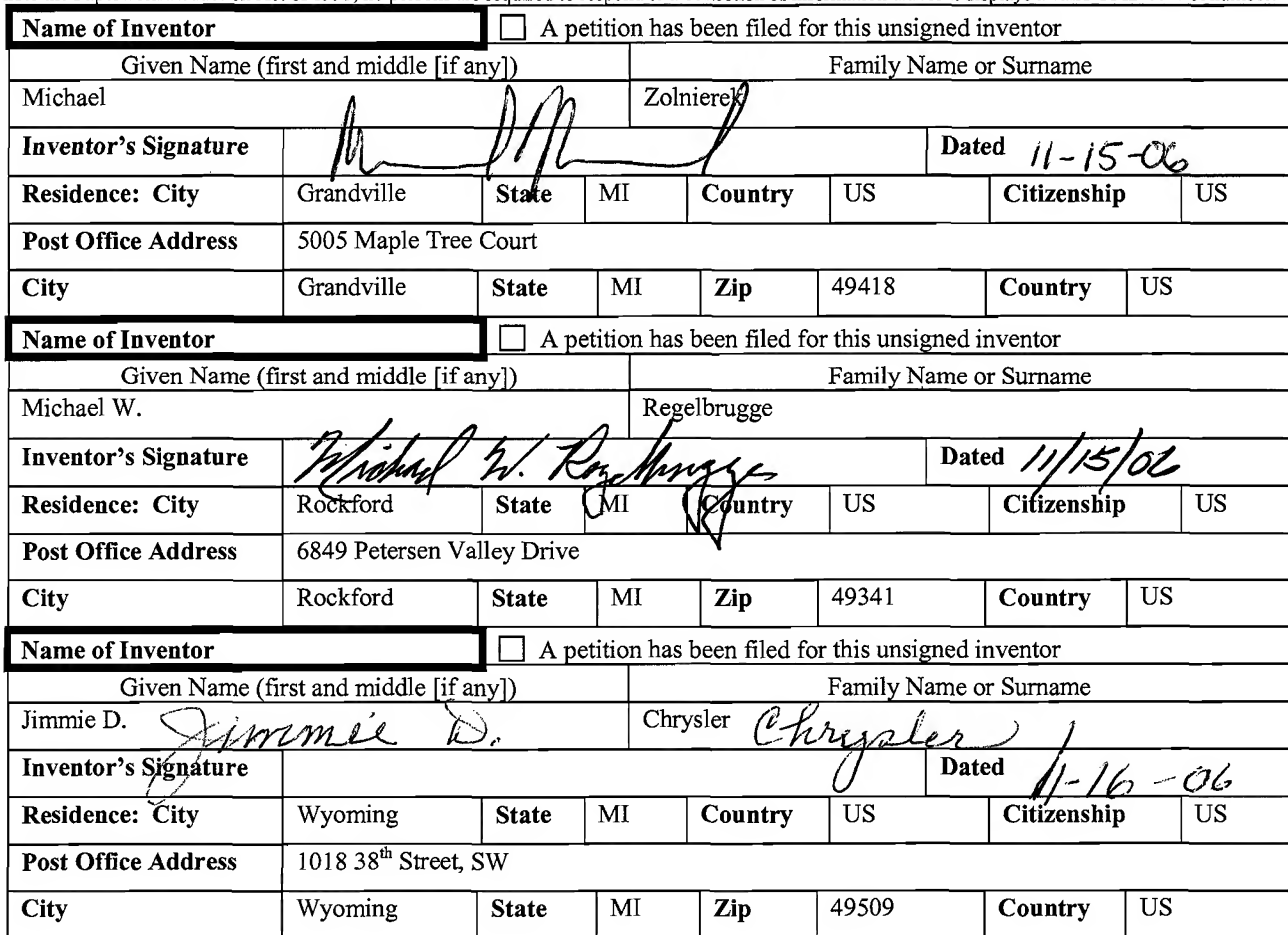 Name of Inventor A petition has been filed for this unsigned inventor
Given Name (first and middle [if any]) Family Name or Surname
Michael Zolnierek
Inventor's Signature Dated 11-15-06
Residence: City Grandville State MI Country US Citizenship US
Post Office Address 5005 Maple Tree Court
City Grandville State MI Zip 49418 Country US
Name of Inventor A petition has been filed for this unsigned inventor
Given Name (first and middle [if any]) Family Name or Surname
Michael W. Regelbrugge
Inventor's Signature Michael W. Regelbrugge Dated 11/15/06
Residence: City Rockford State MI Country US Citizenship US
Post Office Address 6849 Petersen Valley Drive
City Rockford State MI Zip 49341 Country US
Name of Inventor A petition has been filed for this unsigned inventor
Given Name (first and middle [if any]) Family Name or Surname
Jimmie D. Jimmie D. Chrysler Chrysler
Inventor's Signature Dated 11-16-06
Residence: City Wyoming State MI Country US Citizenship US
Post Office Address 1018 38th Street, SW
City Wyoming State MI Zip 49509 Country US